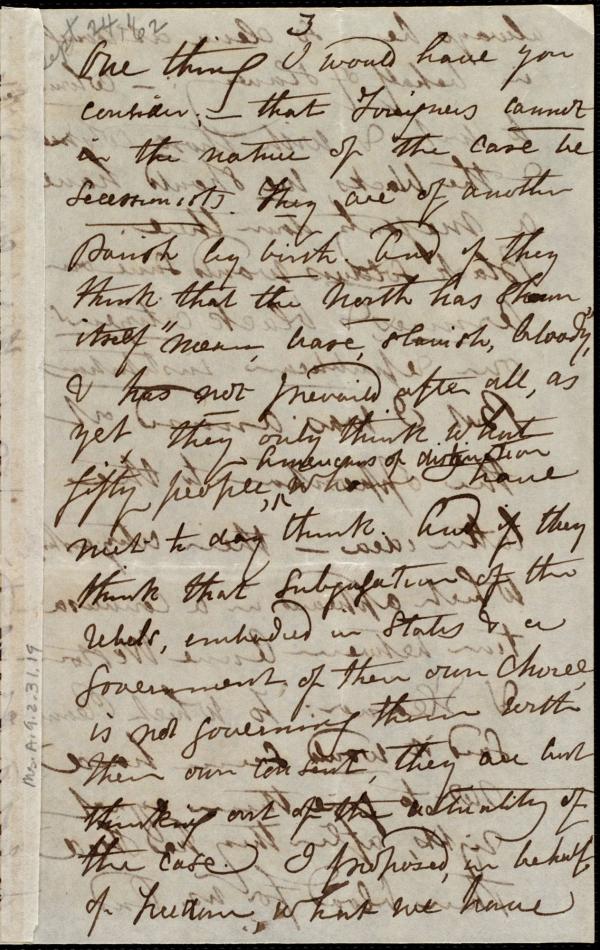 Sept 24. '62
3
One thing I would have you
consider, – that Foreigners cannot
in the nature of the case be
Secessionists. They are of another
Parish by birth. And if they
think that the North has shewn
itself "mean, base, slavish, bloody,"
& has not prevaild after all, as
yet they only think what
Americans of distinction
fifty people, who I have
met to day think. And if they
think that Subjugation of the
rebels, embodied in States & a
government of their own choice,
is not governing them with
their own consent, they are but
thinking out of the actuality of
the case. I proposed, in behalf
of freedom, what we have
Ms. A. 9. 2. 31. 19